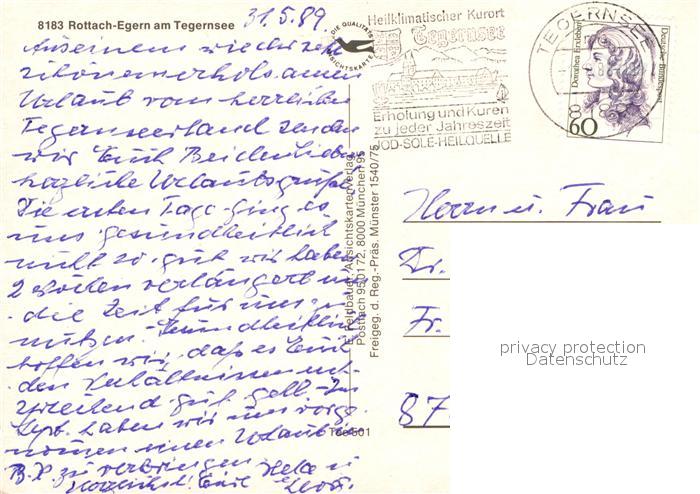 8183 Rottach-Egern am Tegernsee
31.5.89
Aus einem wiedersehr
schönen erholsamen
Urlaub vom herrlichen
Tegernseerland senden
wir Euch Beiden liebe
herzliche Urlaubsgrüße
Die ersten Tage ging es
uns gesundheitlich
nicht so gut wir haben
2 Wochen verlängert um
die Zeit für uns zu
nutzen. Gesundheitlich
hoffen wir, daß es Euch
den Verhältnissen ent-
sprechend gut geht. Im
Sept. haben wir uns vorge-
nommen einen Urlaub in
B.X. zu verbringen
Herzlichst Eure
DIE QUALITÄTS
ANSICHTSKARTE
Heilklimatischer Kurort
Tegernsee
Erholung und Kuren
zu jeder Jahreszeit
JOD-SOLE-HEILQUELLE
TEGERNSEE
Dorothea Erxleben
Deutsche Bundespost
60
E. Feldbauer, Ansichtskartenverlag
Postfach 950172, 8000 München 95
Freigeg. d. Reg.-Präs. Münster 1540/75
Herrn u. Frau
Dr.
Fr.
87
privacy protection
Datenschutz